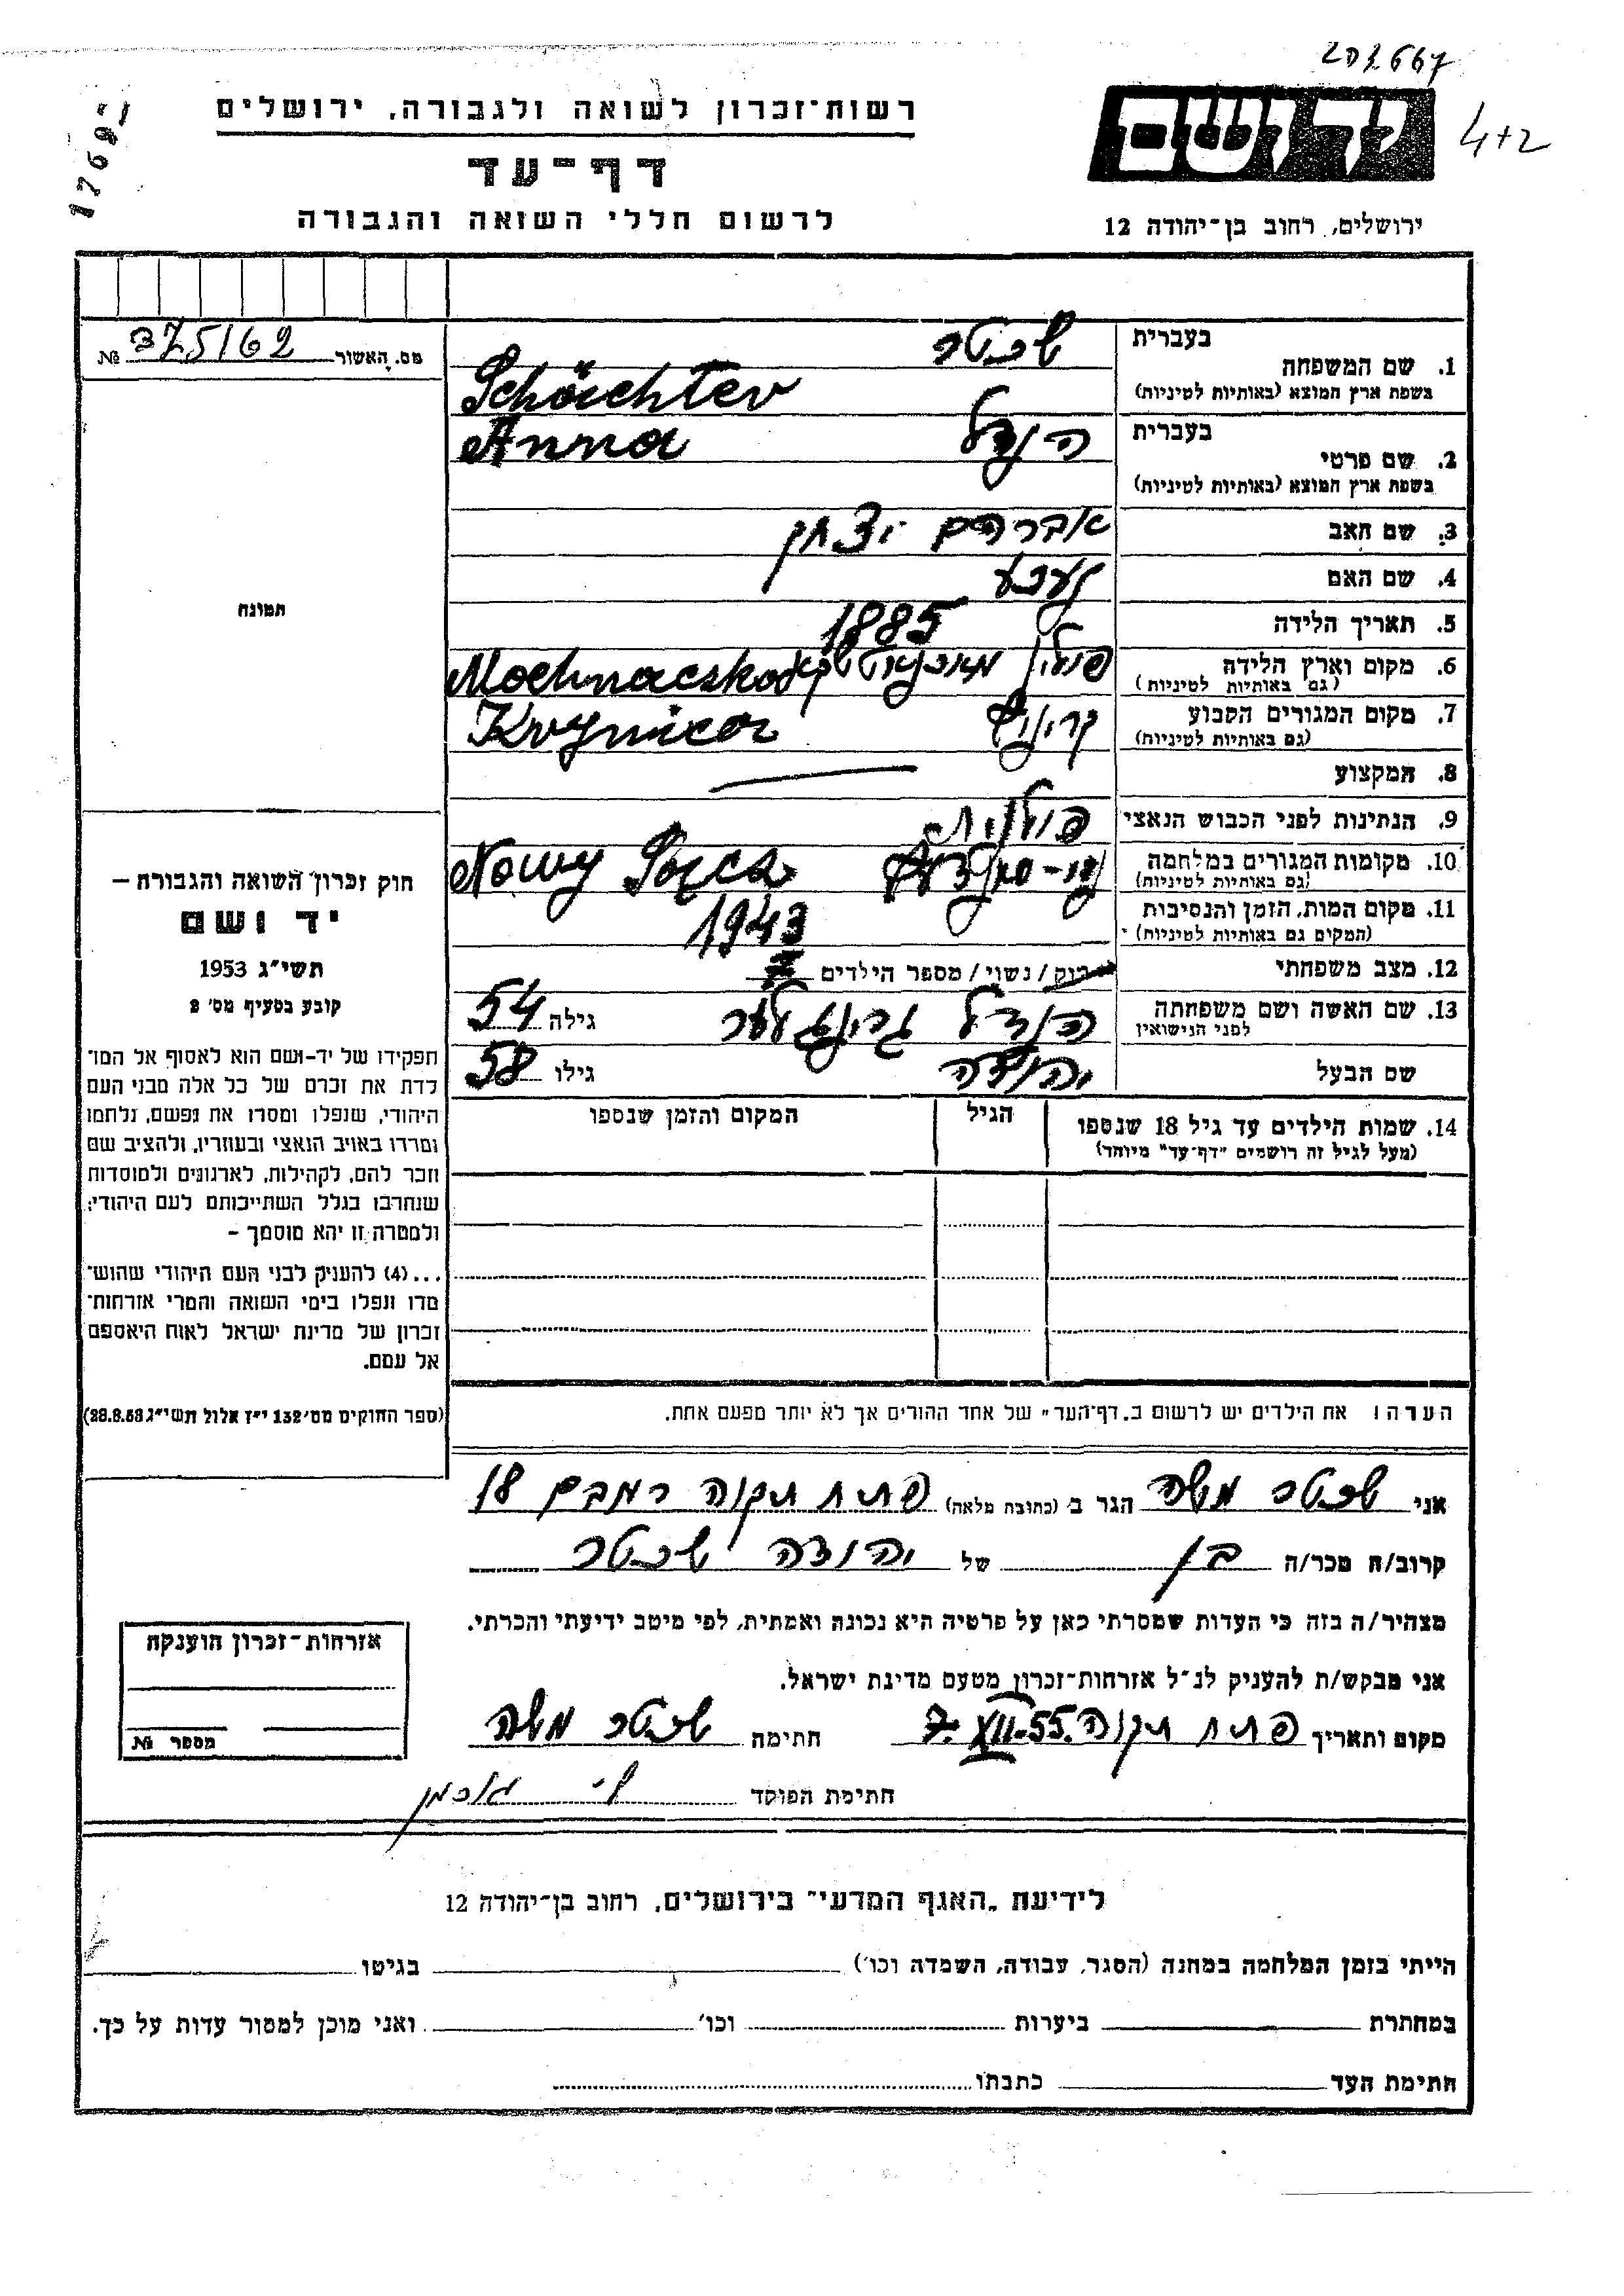 203667
4+2
17687
יד ושם
ירושלים, רחוב בן־יהודה 12
רשות־זכרון לשואה ולגבורה, ירושלים
דף־עד
לרשום חללי השואה והגבורה
מס. האשור 375/62 №
תמונה
בעברית שכטר
1. שם המשפחה
בשפת ארץ המוצא (באותיות לטיניות) Schächter
בעברית הנדל
2. שם פרטי Anna
בשפת ארץ המוצא (באותיות לטיניות)
3. שם האב אברהם יצחק
4. שם האם
5. תאריך הלידה 1885
6. מקום וארץ הלידה פולין Mochnaczka
(גם באותיות לטיניות)
7. מקום המגורים הקבוע קריניץ Krynica
(גם באותיות לטיניות)
8. המקצוע
9. הנתינות לפני הכבוש הנאצי פולנית
10. מקומות המגורים במלחמה Nowy Sącz
(גם באותיות לטיניות)
11. מקום המות, הזמן והנסיבות 1943
(המקום גם באותיות לטיניות)
12. מצב משפחתי רוק / נשוי / מספר הילדים
13. שם האשה ושם משפחתה הנדל גילה 54
לפני הנישואין
שם הבעל יהודה גילו 58
14. שמות הילדים עד גיל 18 שנספו הגיל המקום והזמן שנספו
(מעל לגיל זה רושמים "דף־עד" מיוחד)
הערה: את הילדים יש לרשום ב„דף־העד" של אחד ההורים אך לא יותר מפעם אחת.
חוק זכרון השואה והגבורה –
יד ושם
תשי"ג 1953
קובע בסעיף מס' 2
תפקידו של יד–ושם הוא לאסוף אל המו־
לדת את זכרם של כל אלה מבני העם
היהודי, שנפלו ומסרו את נפשם, נלחמו
ומרדו באויב הנאצי ובעוזריו, ולהציב שם
וזכר להם, לקהילות, לארגונים ולמוסדות
שנחרבו בגלל השתייכותם לעם היהודי;
ולמטרה זו יהא מוסמך –
...(4) להעניק לבני העם היהודי שהוש־
מדו ונפלו בימי השואה והמרי אזרחות־
זכרון של מדינת ישראל לאות היאספם
אל עמם.
(ספר החוקים מס' 132 י"ז אלול תשי"ג 28.8.53)
אני שכטר משה הגר ב (כתובת מלאה) פתח תקוה רמבם 18
קרוב/ה מכר/ה בן של יהודה שכטר
מצהיר/ה בזה כי העדות שמסרתי כאן על פרטיה היא נכונה ואמתית, לפי מיטב ידיעתי והכרתי.
אני מבקש/ת להעניק לנ"ל אזרחות־זכרון מטעם מדינת ישראל.
מקום ותאריך פתח תקוה 7.XII.55 חתימה שכטר משה
חתימת הפוקד
אזרחות־זכרון הוענקה
מספר №
לידיעת „האגף המדעי" בירושלים, רחוב בן־יהודה 12
הייתי בזמן המלחמה במחנה (הסגר, עבודה, השמדה וכו') בגיטו
במחתרת ביערות וכו' ואני מוכן למסור עדות על כך.
חתימת העד כתבתו